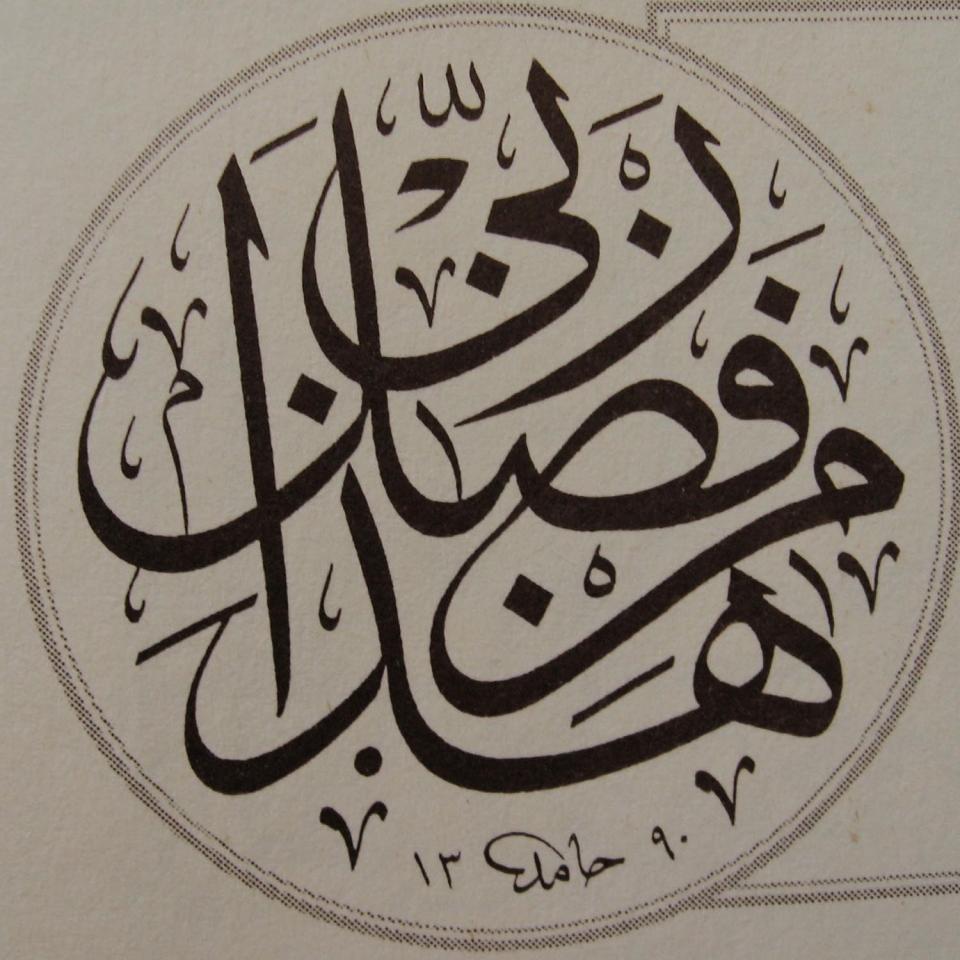 هذا من فضل ربي
حامد ١٣٩٠